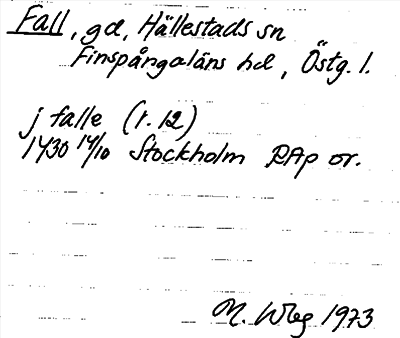 Fall, gd, Hällestads sn
Finspångaläns hd, Östg. l.
j falle (r. 12)
1430 14/10 Stockholm RAp or.
M. Wbg 1973